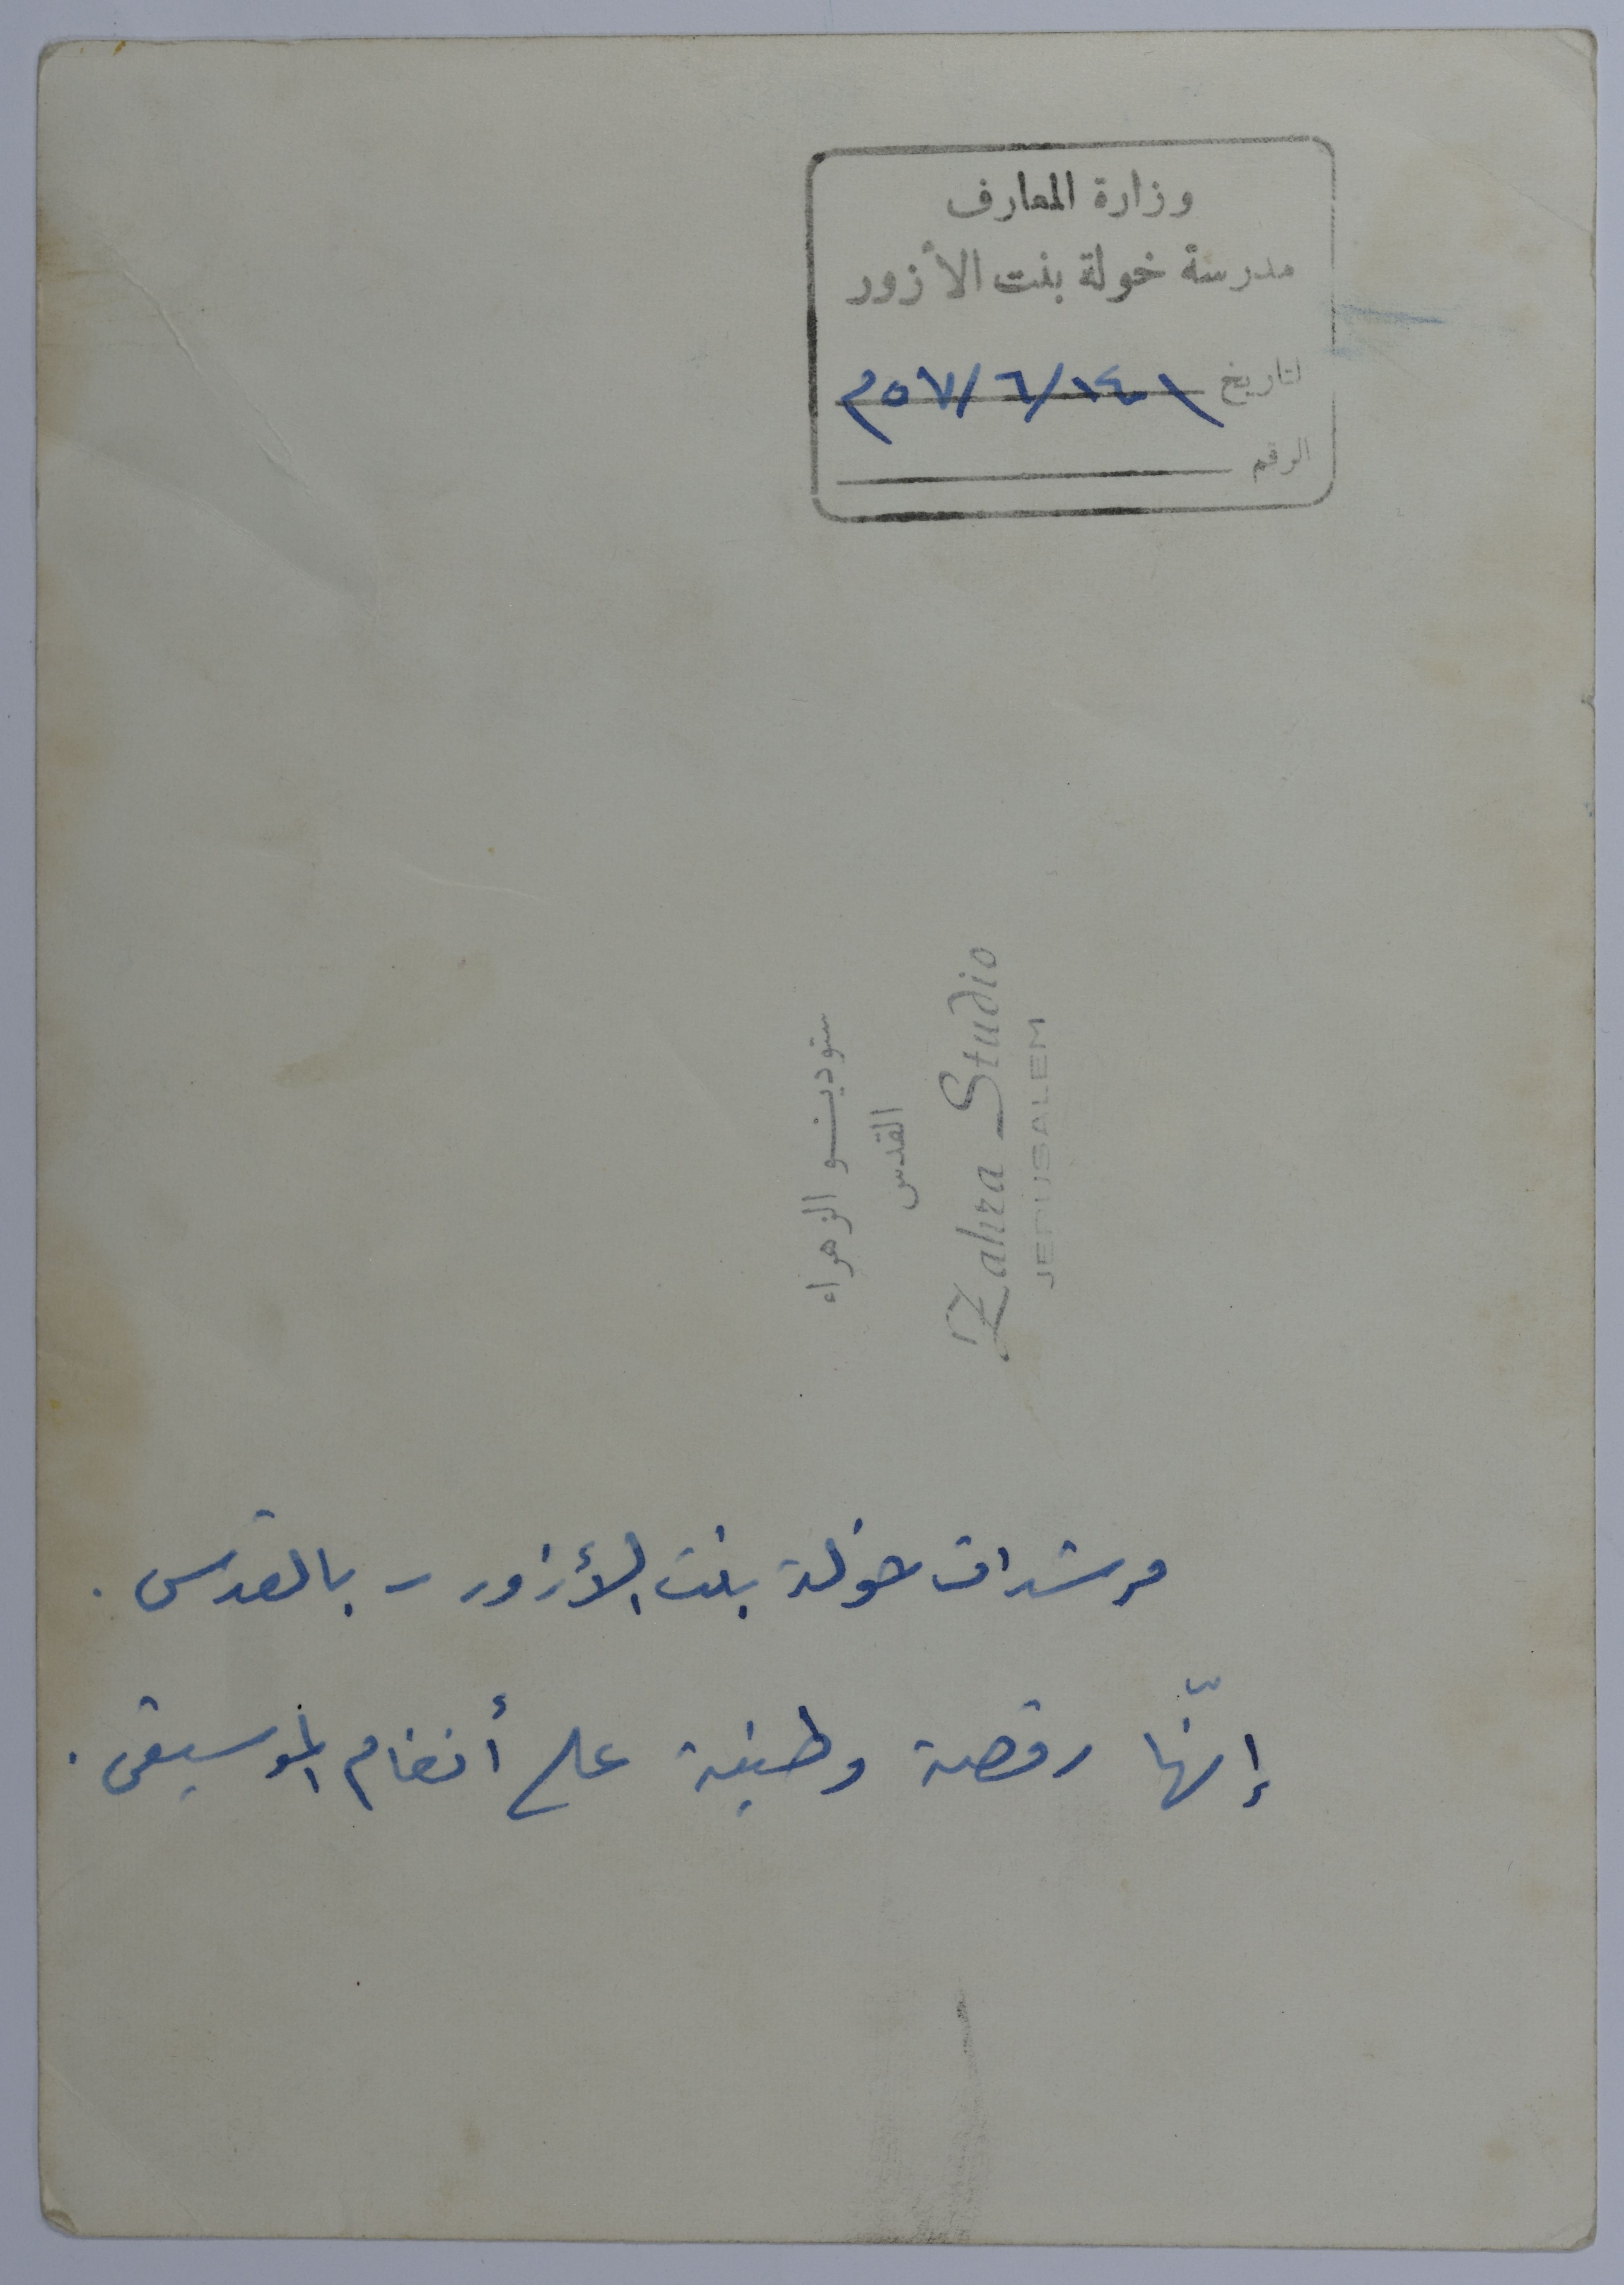 وزارة المعارف
مدرسة خولة بنت الأزور
التاريخ ١٤/٦/٥٧م
الرقم
ستوديو الزهراء
القدس
Zahra Studio
JERUSALEM
مرشدات خولة بنت الأزور - بالقدس .
إنّها رقصة وطنية على أنغام الموسيقى .